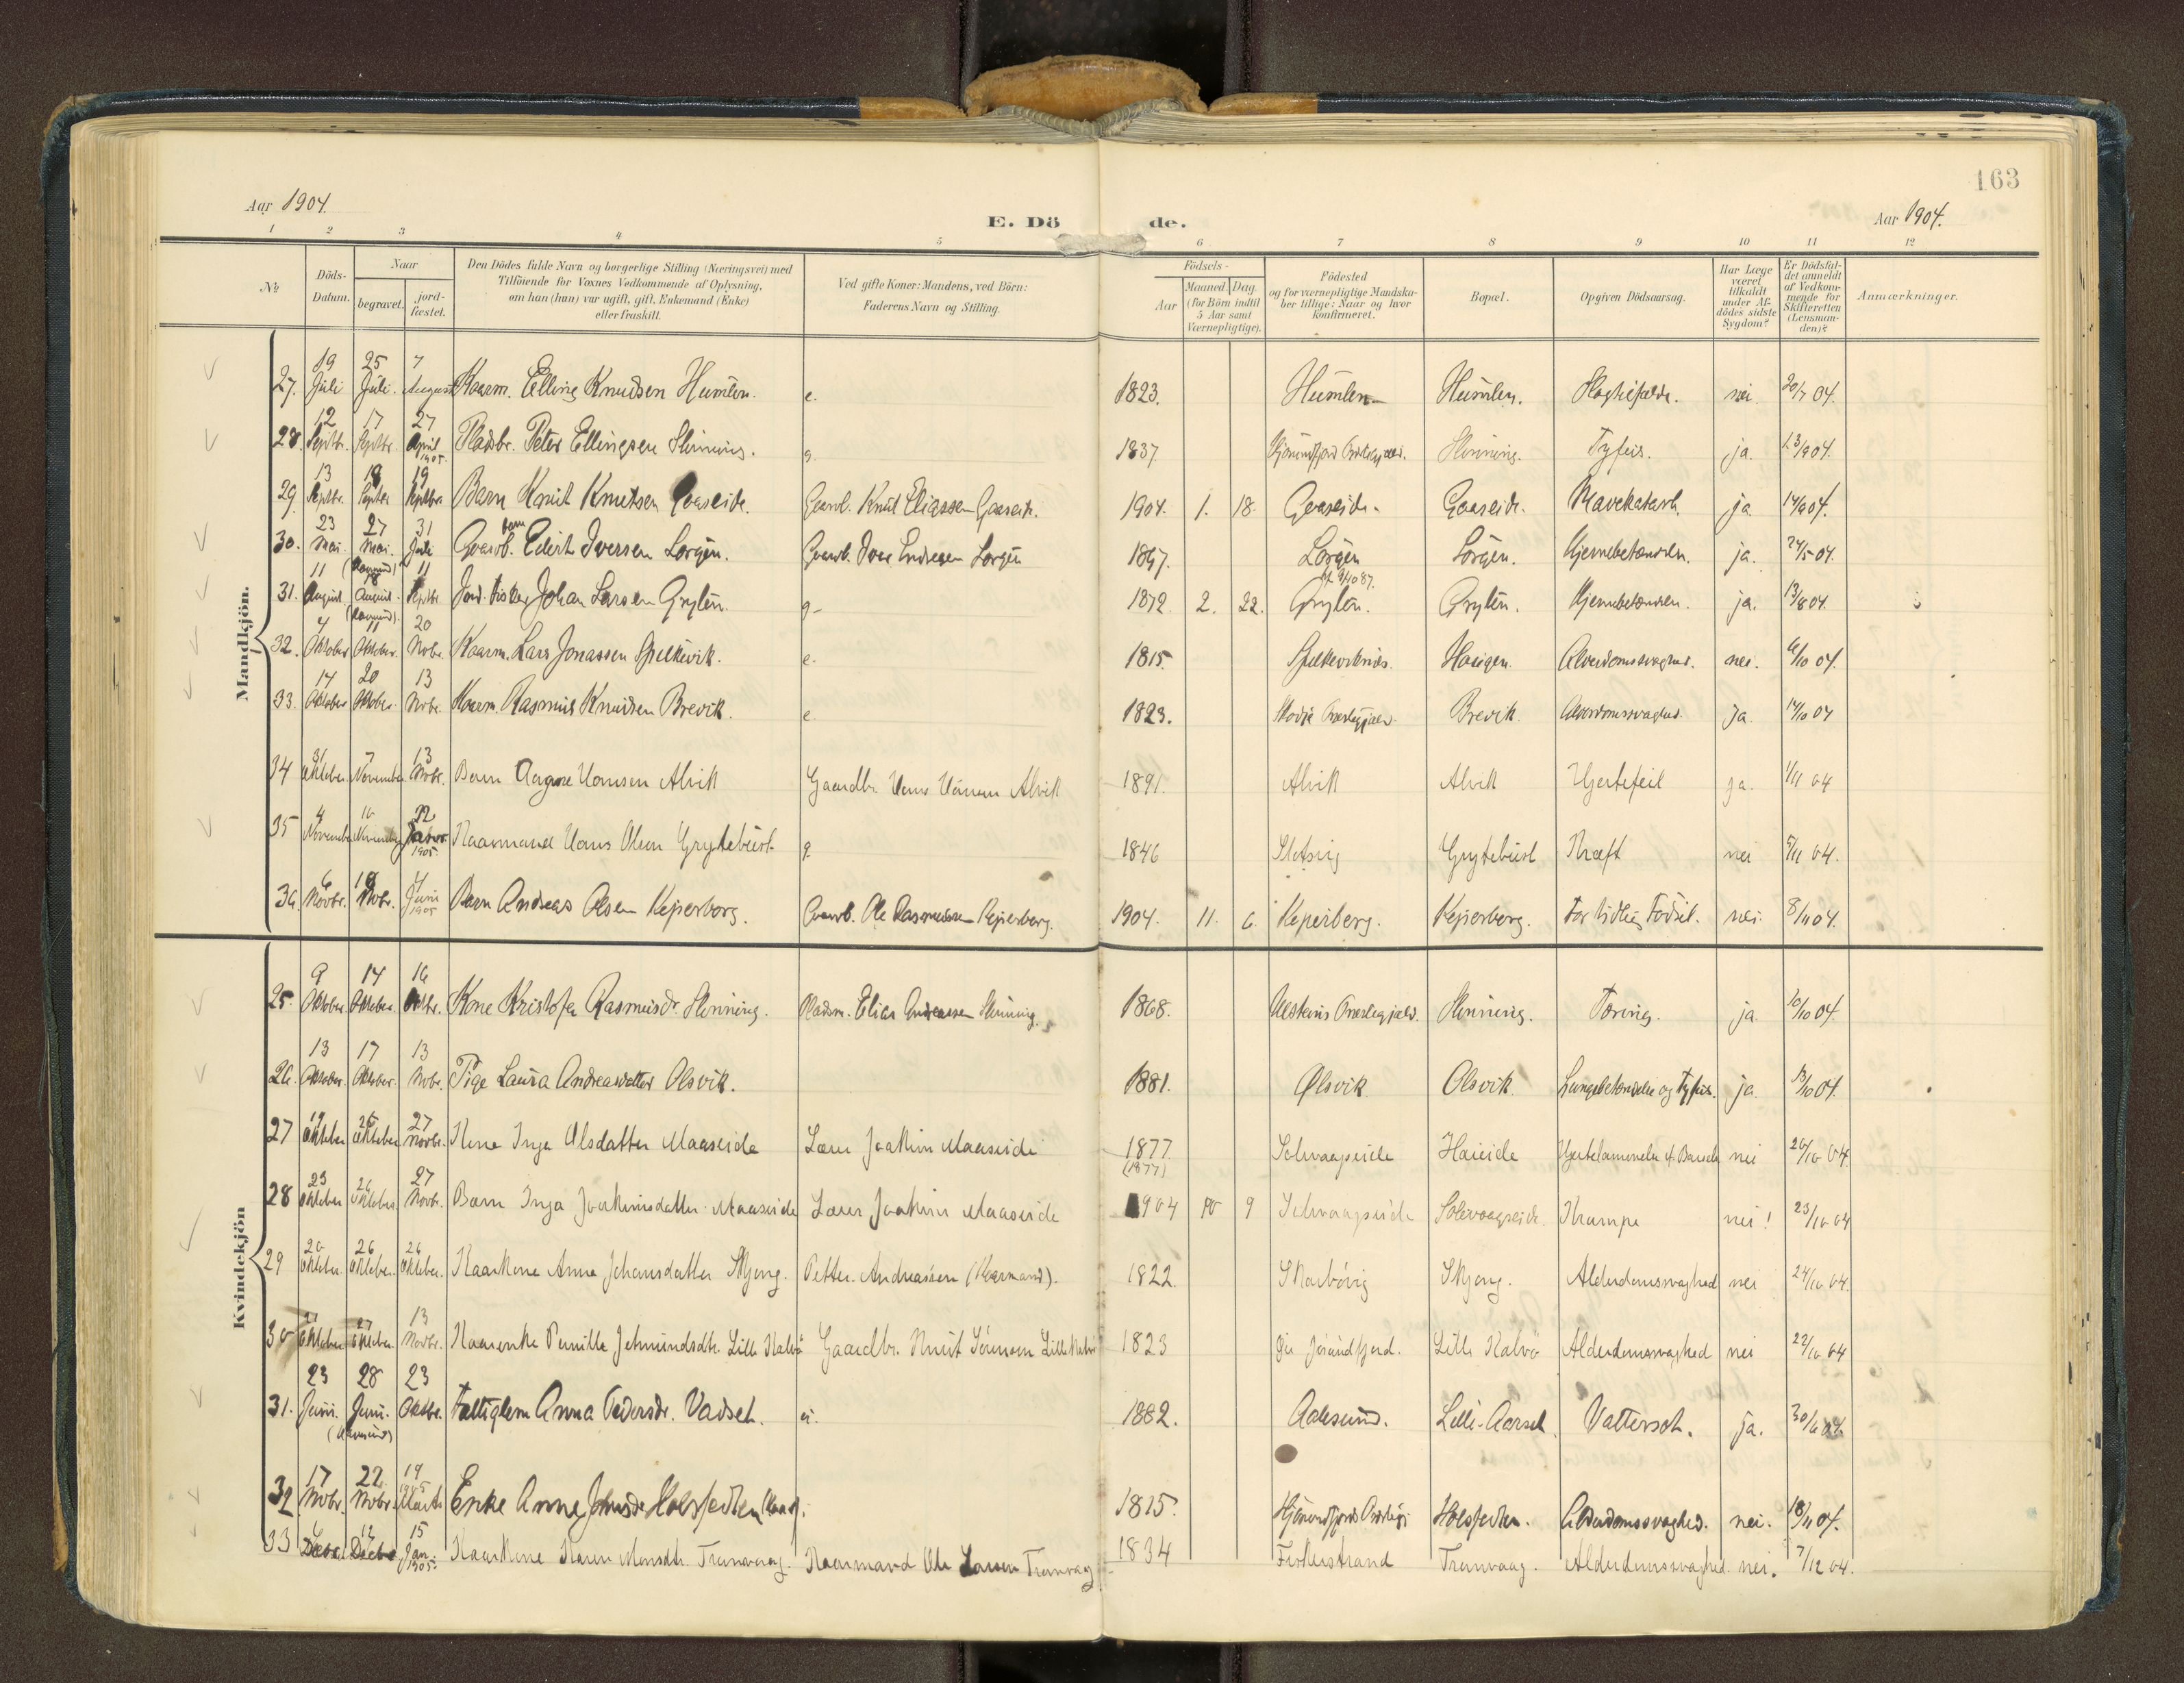 163
Aar 1904.
E. Dö de.
Aar 1904.
1 2 3 4 5 6 7 8 9 10 11 12
No
Döds-Datum.
Naar
begravet.
jord-fæstet.
Den Dödes fulde Navn og borgerlige Stilling (Næringsvei) med
Tilföiende for Voxnes Vedkommende af Oplysning,
om han (hun) var ugift, gift, Enkemand (Enke)
eller fraskilt.
Ved gifte Koner: Mandens, ved Börn:
Faderens Navn og Stilling.
Födsels-
Aar
Maaned. Dag.
(for Börn indtil
5 Aar samt
Værnepligtige).
Födested
og for værnepligtige Mandska-
ber tillige: Naar og hvor
konfirmeret.
Bopæl.
Opgiven Dödsaarsag.
Har Læge
været
tilkaldt
under Af-
dödes sidste
Sygdom?
Er Dödsfal-
det anmeldt
af Vedkom-
mende for
Skifteretten
(Lensman-
den)?
Anmærkninger.
Mandkjön.
27. 19 Juli 25 Juli. 7 August Kaarm. Elling Knudsen Humlen. e. 1823. Humlen Humlen. nei. 20/7 04.
28. 12 Septbr. 17 Septbr. 27 April 1905. Pladsbr. Peter Ellingsen Flinning. g. 1837. Hjörundfjord Præstegjæld. Flinning. Tyfus. ja. 13/9 04.
29. 13 Septbr. 18 Septbr. 19 Septbr. Barn Knut Knutsen Gaaseide. Gaardb. Knut Eliassen Gaaseide. 1904. 1. 18. Gaaseide. Gaaseide. Mavekatarrh. ja. 14/9 04.
30. 23 Mai. 27 Mai. 31 Juli Gaardb. Edert Iversen Lorgen. Gaardb. Iver Lorgen 1897. Lorgen Lorgen. Hjernebetændelse. ja. 24/5 04.
31. 11 August 18 August. (Aalesund). 11 Septbr. Fisker Johan Larsen Gryten. g. 1872. 2. 22. Gryten. Gryten. Hjernebetændelse. ja. 13/8 04.
32. 4 Oktober 11 Oktober. 20 Novbr. Kaarm. Lars Jonassen Spilkevik. e. 1815. Haugen. Alderdomssvaghed. nei. 6/10 04.
33. 14 Oktober 20 Oktober. 13 Novbr. Kaarm. Rasmus Knudsen Brevik. e. 1823. Skodje Præstegjæld. Brevik. Alderdomssvaghed. ja 14/10 04
34 31 Oktober 7 November 13 Novbr. Barn Aagne Hansen Alvik Gaardbr. Hans Hansen Alvik 1891. Alvik Alvik Hjertefeil ja. 1/11 04
35 4 November 10 November 22 1905. Kaarmand Hans Olsen Grytebust. g. 1846 Slotsvig Grytebust Kræft nei 5/11 04.
36. 6 Novbr. 18 Novbr. 4 Juni 1905 Barn Andreas Olsen Keperborg. Gaardb. Ole Rasmussen Keperborg. 1904. 11. 6. Keperborg. Keperborg. For tidlig Fødsel. nei. 8/11 04.
Kvindekjön
25. 9 Oktober 14 Oktober. 16 Oktbr. Kone Kristofa Rasmusdr. Flinning. Pladsm. Elias Andreassen Flinning. 1868. Ulsteins Præstegjæld. Flinning. Tæring. ja. 10/10 04.
26. 13 Oktober. 17 Oktober. 13 Novbr. Pige Laura Andreasdatter Olsvik. 1881. Olsvik Olsvik. Lungebetændelse og Tyfus. ja. 13/10 04.
27 19 Oktober 25 Oktober 27 Novbr. Kone Inga Olsdatter Maaseide Lærer Joakim Maaseide 1877 (1877) Solevaagseide Haueide Hjertelammelse nei 26/10 04.
28 23 Oktober 26 Oktober. 27 Novbr. Barn Inga Joakimsdatter Maaseide Lærer Joakim Maaseide 1904 10 9 Solevaagseide Solevaagseide. Krampe nei! 23/10 04
29 20 Oktober. 26 Oktober. 26 Oktober. Kaarkone Anna Johansdatter Skjong. Petter Andreassen (Kaarmand). 1822. Skarbövig Skjong. Alderdomssvaghed nei 24/10 04.
30 21 Oktober 27 Oktober. 13 Novbr. Kaarenke Pernille Jetmundsdtr. Lille Kalvö Gaardbr. Knut Sörensen Lille Kalvö 1823 Jörundfjord. Lille Kalvö Alderdomssvaghed nei 22/10 04
31. 23 Juni. 28 Juni. (Aalesund) 23 Oktbr. Fattiglem Anna Pedersdr. Vadset. ei. 1882. Aalesund. Lille-Aarset. Vattersot. ja. 30/6 04.
32. 17 Novbr. 22 Novbr. 19 1905 Marts Enke Anne Johnsdr. Holsfedten 1815. Hjörundfjords Holsfedten. Alderdomssvaghed. nei. 18/11 04.
33 6 Decbr. 12 Decbr. 15 Jan. 1905. Kaarkone Karen Monsdtr. Tranvaag. Kaarmand Ole Larsen Tranvaag 1834 Fiskerstrand Tranvaag. Alderdomssvaghed. nei. 7/12 04.